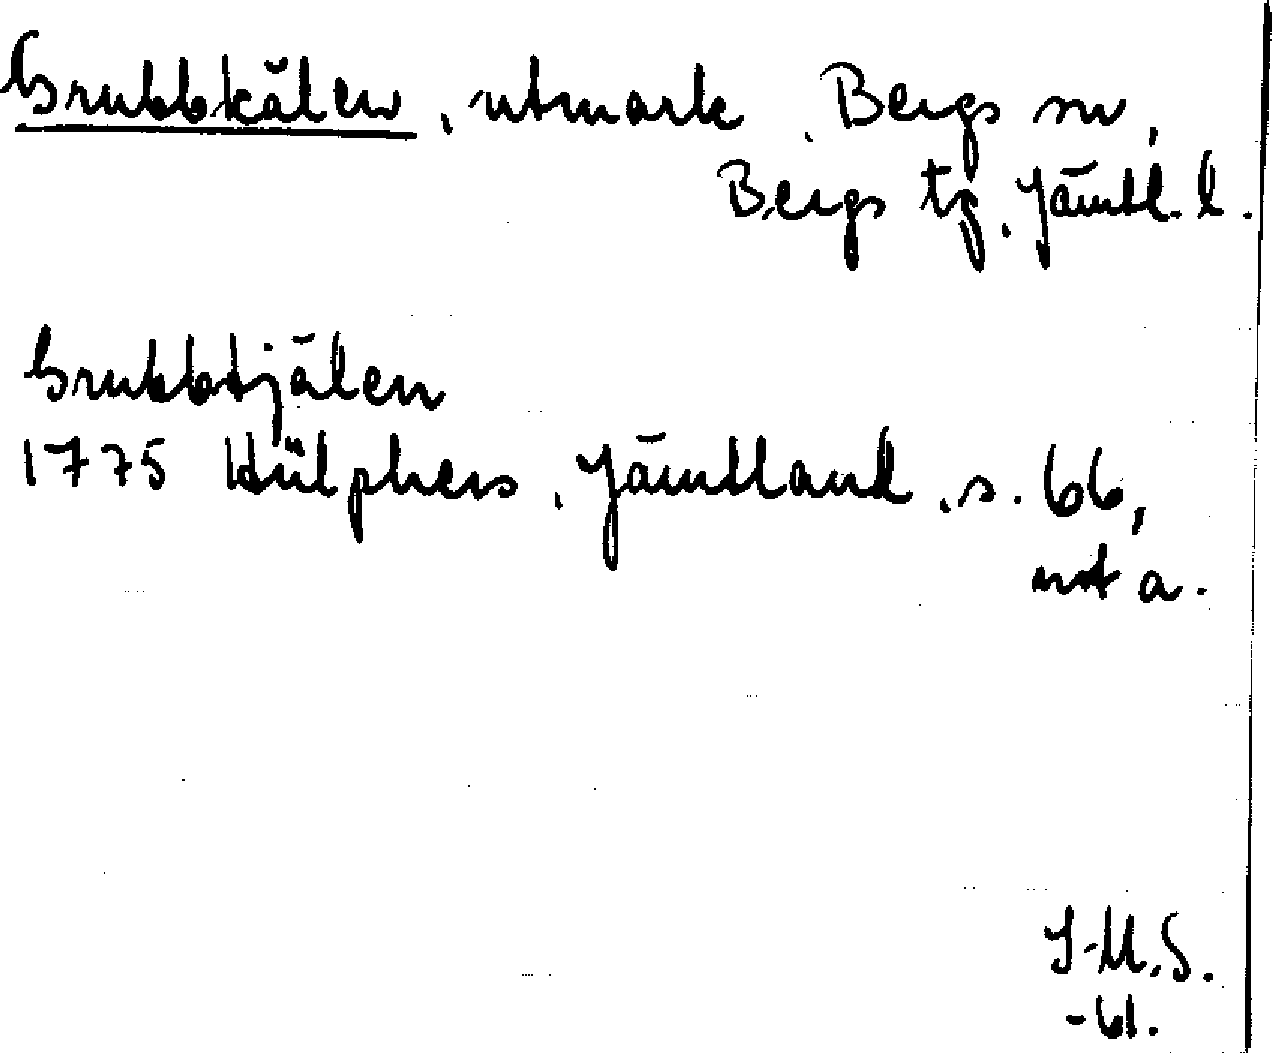 Grubbkälen, utmark, Bergs sn,
Bergs tg, Jämtl. l.
Grubbtjälen
1775 Hülphers, Jämtland, s. 66,
not a.
I-M.S.
-61.